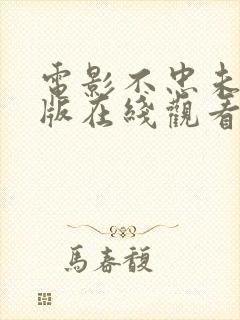 電影不忠未
版在綫觀看
馬春馥